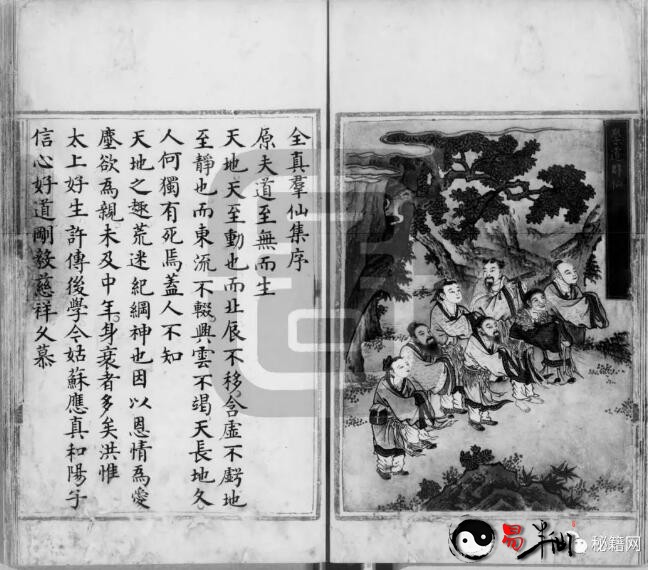 全真羣仙集序
原夫道至無而生
天地天至動也而北辰不移含虛不虧地
至靜也而東流不輟興雲不竭天長地久
人何獨有死焉蓋人不知
天地之趣荒迷紀綱神也因以恩情為愛
塵欲為親未及中年身衰者多矣洪惟
太上好生許傳後學今姑蘇應真和陽子
信心好道剛毅慈祥久慕
易半仙
秘籍网